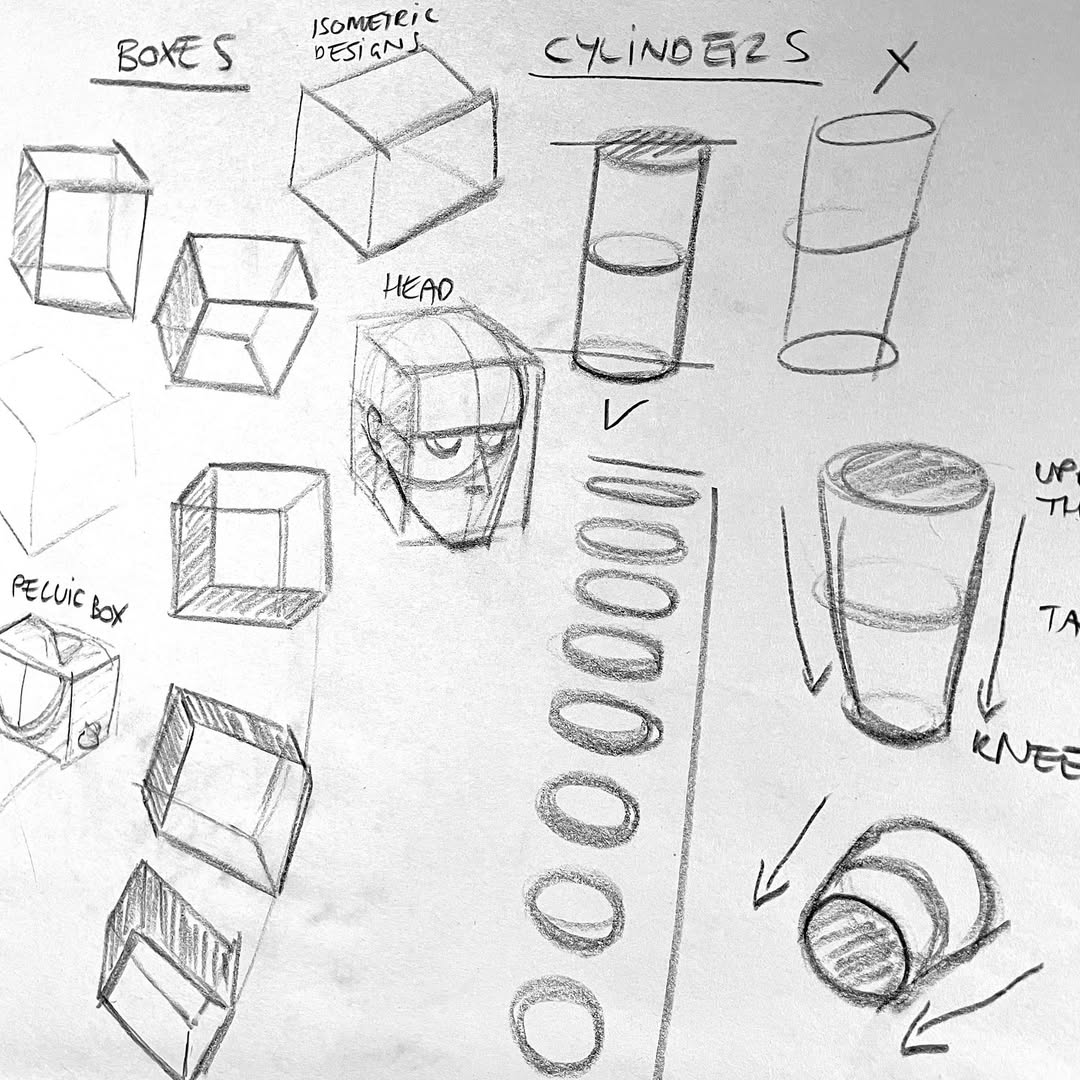 BOXES
ISOMETRIC
DESIGNS
CYLINDERS
X
HEAD
PELVIC BOX
KNEE